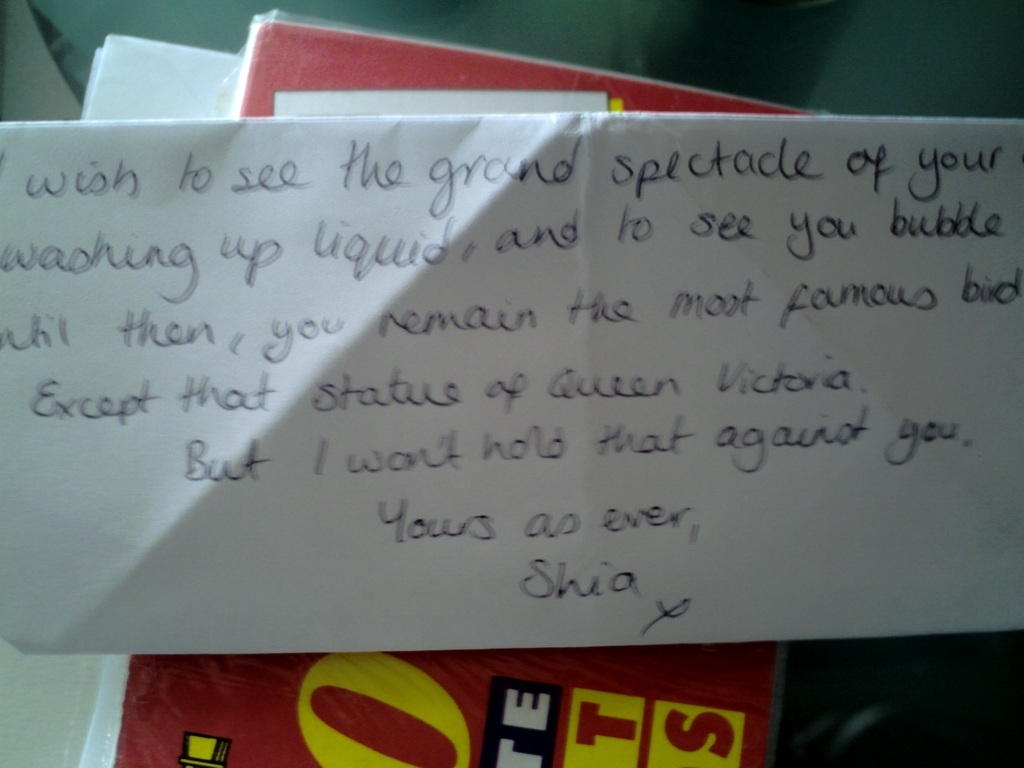 I wish to see the grand spectacle of your
washing up liquid, and to see you bubble
until then, you remain the most famous bird
Except that statue of Queen Victoria.
But I won't hold that against you.
Yours as ever,
Shia x
O
TE
T
S